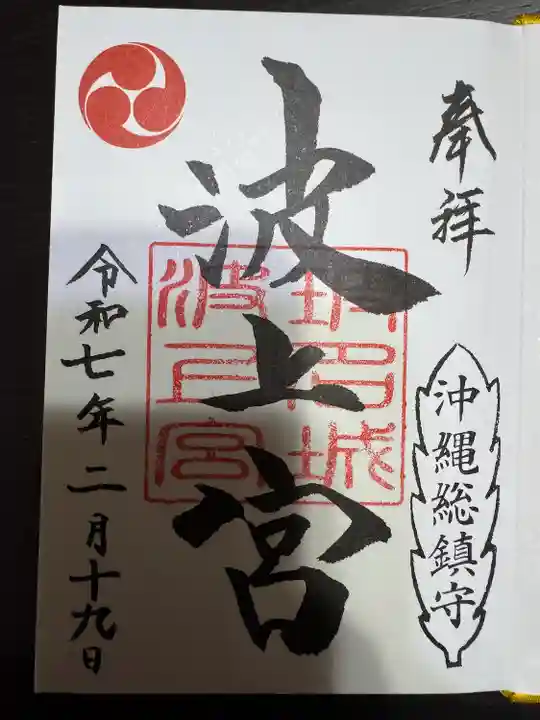 奉拝
沖縄総鎮守
波上宮
令和七年二月十九日
波上宮